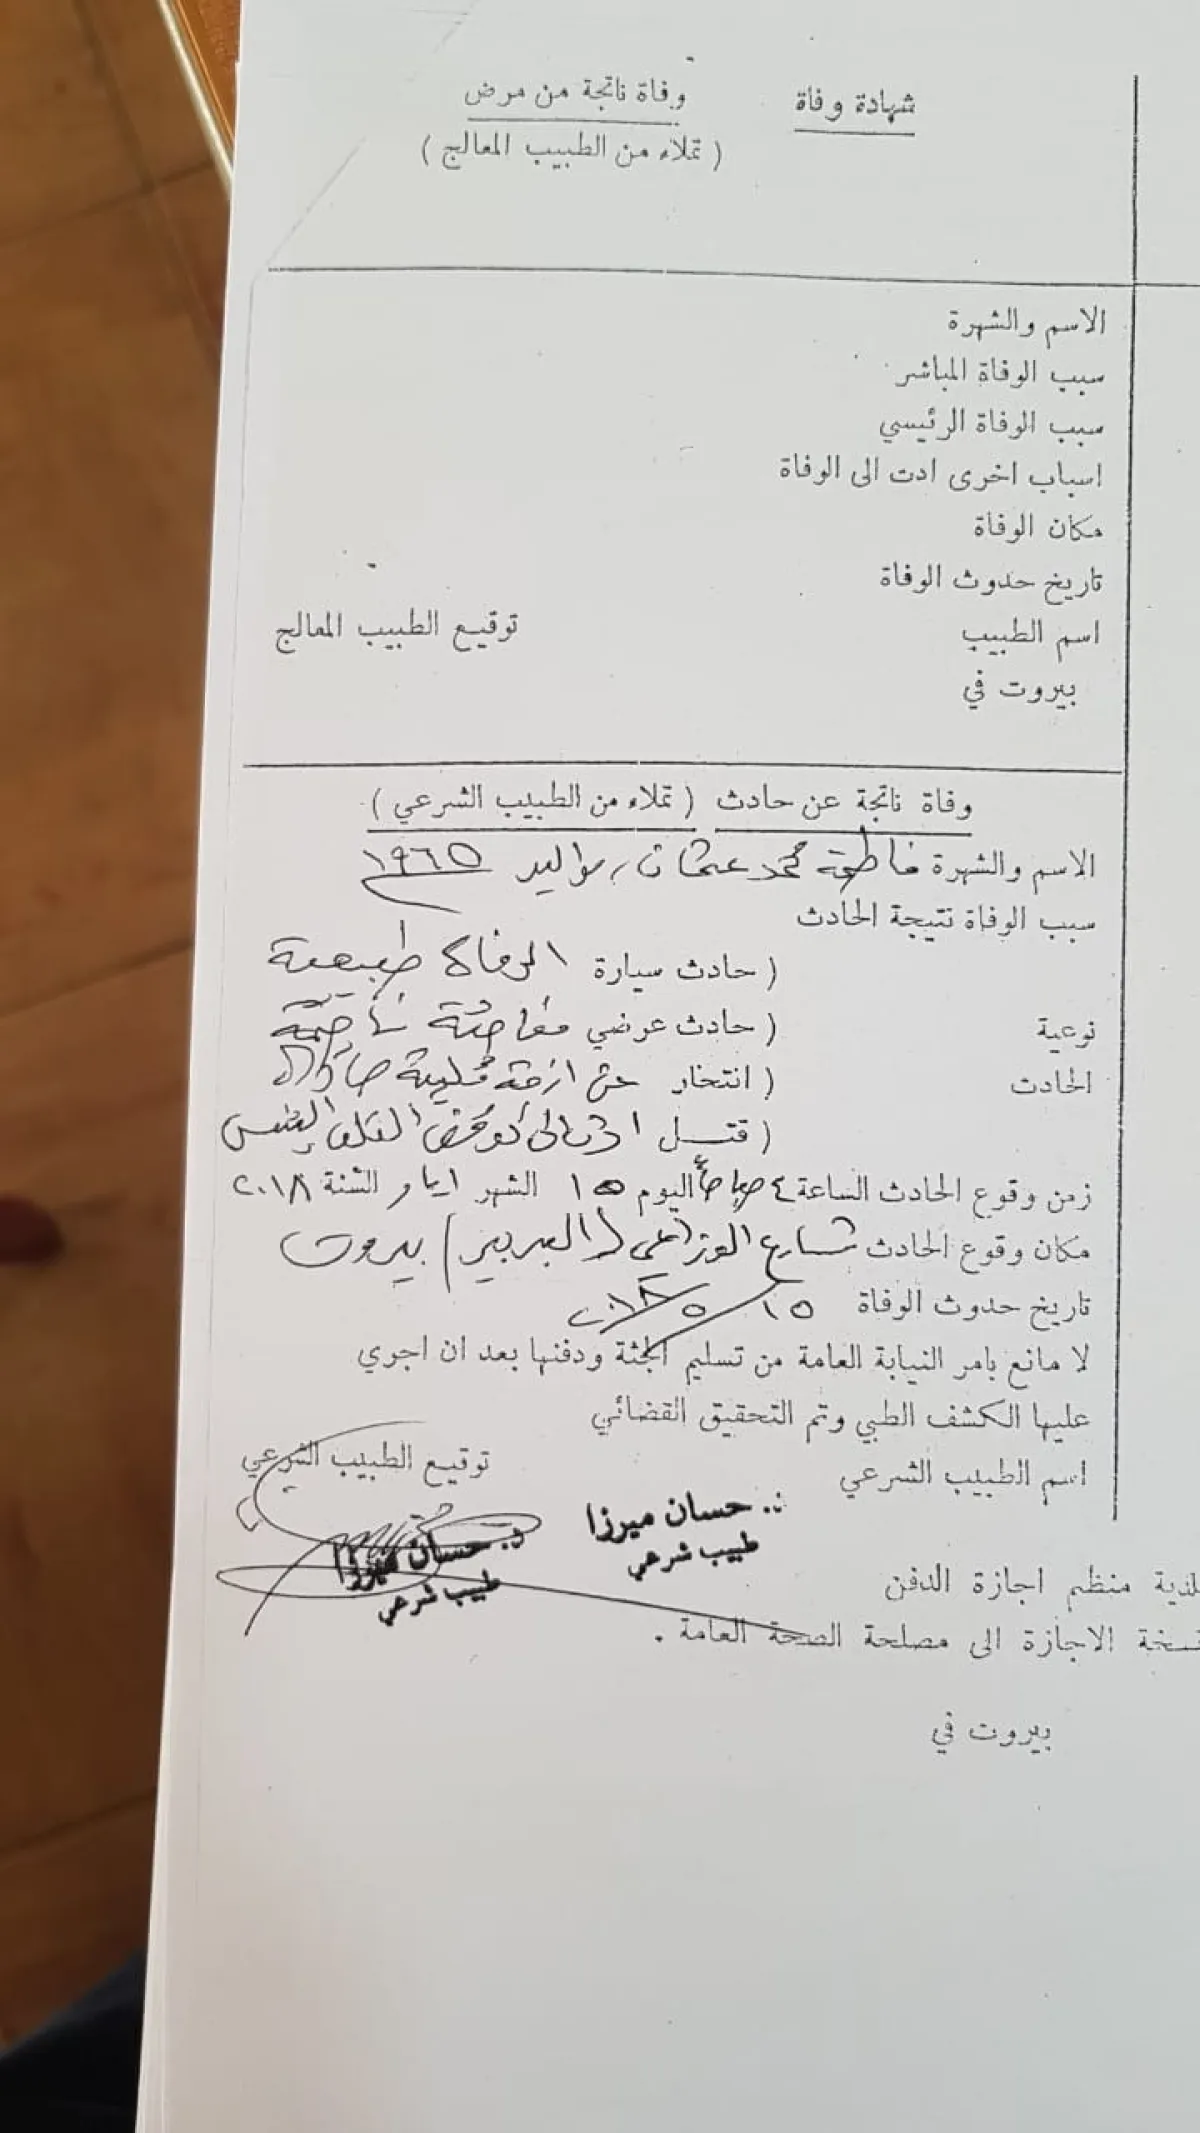 شهادة وفاة
وفاة ناتجة من مرض
( تملاء من الطبيب المعالج )
الاسم والشهرة
سبب الوفاة المباشر
سبب الوفاة الرئيسي
اسباب اخرى ادت الى الوفاة
مكان الوفاة
تاريخ حدوث الوفاة
اسم الطبيب توقيع الطبيب المعالج
بيروت في
وفاة ناتجة عن حادث ( تملاء من الطبيب الشرعي )
الاسم والشهرة فاطمة محمد عثمان مواليد ١٩٦٥
سبب الوفاة نتيجة الحادث
( حادث سيارة الوفاة طبيعية
نوعية ( حادث عرضي مفاجئة ناجمة
الحادث ( انتحار عن ازمة قلبية حادة
( قتل القلب
زمن وقوع الحادث الساعة ٤ صباحاً اليوم ١٥ الشهر ايار الشنة ٢٠١٨
مكان وقوع الحادث شارع الوزاعي بيروت
تاريخ حدوث الوفاة ١٥/٥/٢٠١٨
لا مانع بامر النيابة العامة من تسليم الجثة ودفنها بعد ان اجري
عليها الكشف الطبي وتم التحقيق القضائي
اسم الطبيب الشرعي توقيع الطبيب الشرعي
د. حسان ميرزا
طبيب شرعي
د. حسان ميرزا
طبيب شرعي
منظم اجازة الدفن
نسخة الاجازة الى مصلحة الصحة العامة .
بيروت في